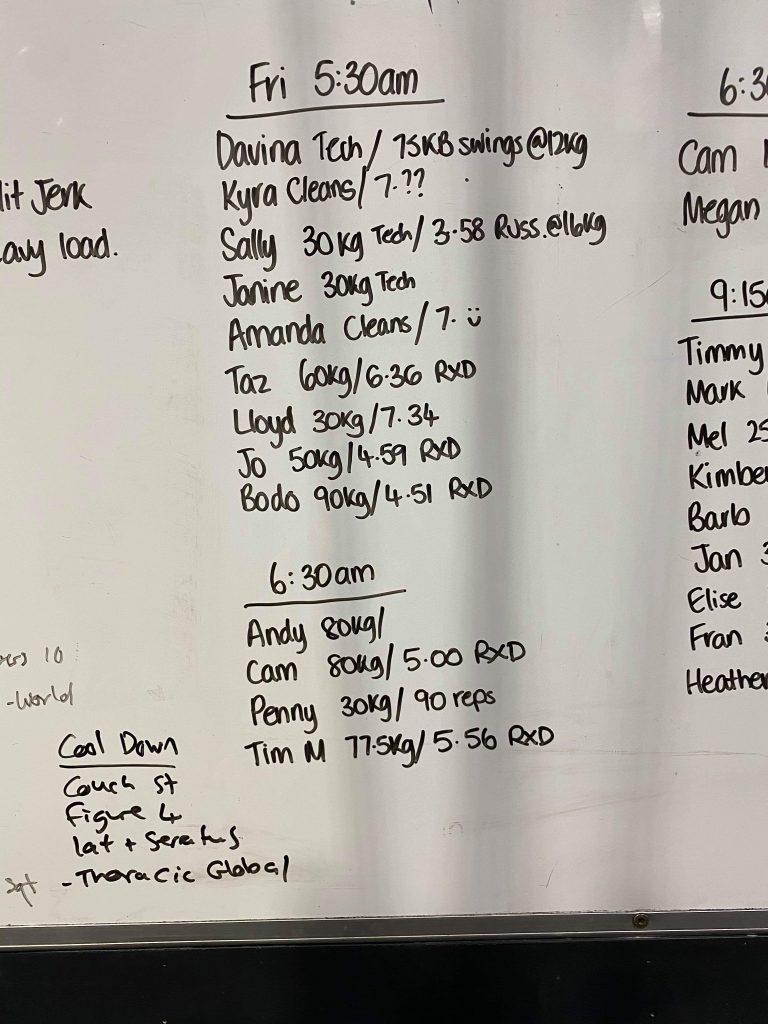 lit Jerk
eavy load.
10
-World
Cool Down
Couch St
Figure 4
lat + Seratus
-Thoracic Global
Sqt
Fri 5:30am
Davina Tech/ 75KB swings@12kg
Kyra Cleans/ 7.??
Sally 30kg Tech/ 3.58 Russ.@16kg
Janine 30kg Tech
Amanda Cleans/ 7. ü
Taz 60kg/6.36 RXD
Lloyd 30kg/7.34
Jo 50kg/4.59 RXD
Bodo 90kg/4.51 RXD
6:30am
Andy 80kg/
Cam 80kg/ 5.00 RXD
Penny 30kg/ 90 reps
Tim M 77.5kg/ 5.56 RXD
6:3
Cam
Megan
9:15
Timmy
Mark
Mel 25
Kimber
Barb
Jan 3
Elise
Fran
Heather